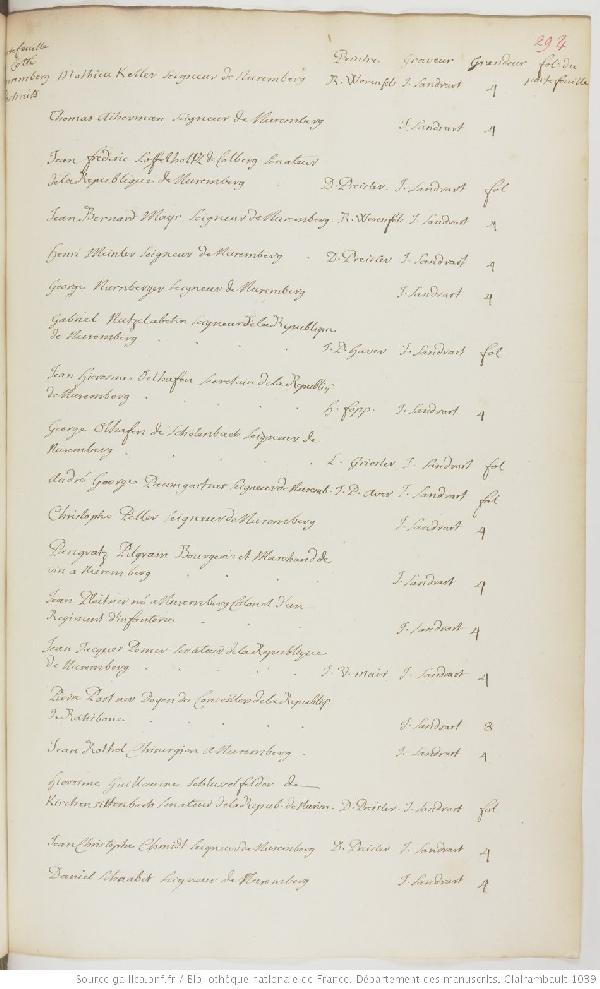 294
Peintre Graveur Grandeur fol. du
portefeuille
Mathieu Keller Seigneur de Nuremberg R. Werenfels J. Sandrart 4
Thomas Akherman Seigneur de Nuremberg J. Sandrart 4
Jean frederic Loffelholtz de Colberg Senateur
de la Republique de Nuremberg D. Preisler J. Sandrart fol
Jean Bernard Mayr Seigneur de Nuremberg R. Werenfels J. Sandrart 4
Henri Meinter Seigneur de Nuremberg D. Preisler J. Sandrart 4
George Nurnberger Seigneur de Nuremberg J. Sandrart 4
Gabriel Nutzel Seigneur de la Republique
de Nuremberg J. Sandrart fol
Jean Hierosme Oelhafen Secretaire de la Republiq
de Nuremberg H. Popp. J. Sandrart 4
George Olhafen de Scholenbach Seigneur de
Nuremberg L. Griesler J. Sandrart fol
André George Paumgartner Seigneur de Nuremb. J. D. Aver J. Sandrart fol
Christophe Peller Seigneur de Nuremberg J. Sandrart 4
Pangratz Pilgram Bourgeois et Marchand de
vin a Nuremberg J. Sandrart 4
Jean né a Nuremberg Colonel d'un
Regiment d'infanterie J. Sandrart 4
Jean Jacques Pomer Senateur de la Republique
de Nuremberg J. V. Mair J. Sandrart 4
Doyen des de la Republiq
de Ratisbonne J. Sandrart 8
Jean Rothel Chirurgien a Nuremberg J. Sandrart 4
Hierosme Guillaume Schlusselfelder de
Kirchensittenbach Senateur de la Repub. de Nurem. D. Preisler J. Sandrart fol
Jean Christophe Schmidt Seigneur de Nuremberg D. Preisler J. Sandrart 4
Daniel Schaabet Seigneur de Nuremberg J. Sandrart 4
Source gallica.bnf.fr / Bibliothèque nationale de France. Département des manuscrits. Clairambault 1039